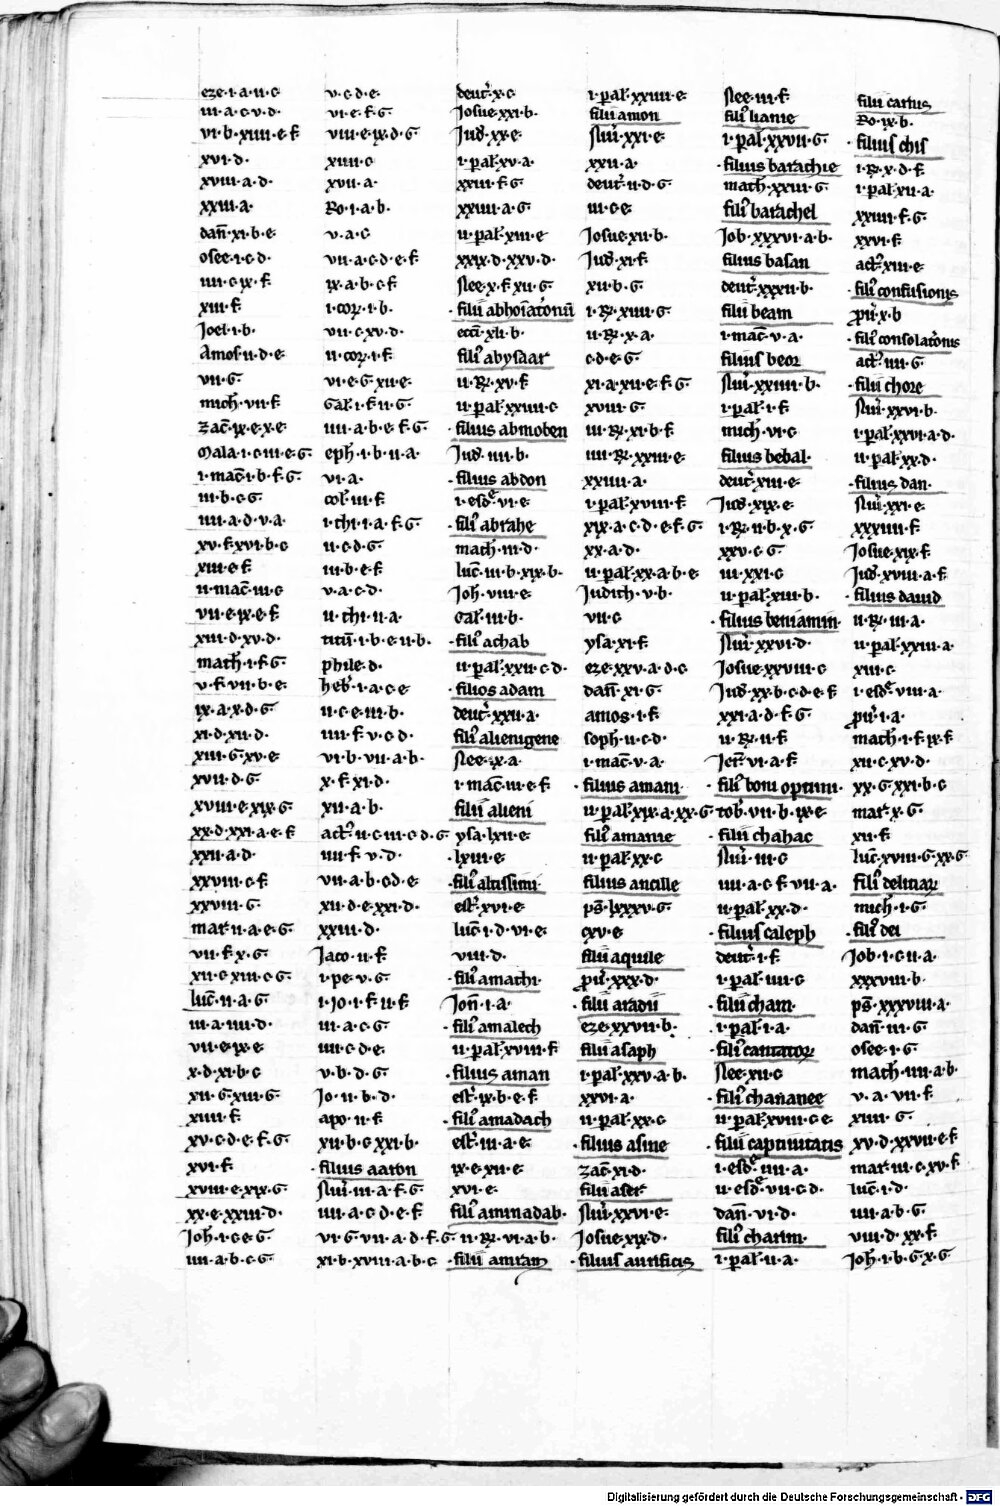 eze·i·a·ii·c
iii·a·c·v·d·
vi·b·xiiii·e·f
xvi·d·
xviii·a·d·
xxiii·a·
dan̄·xi·b·e
osee·i·c·d·
iiii·c·ix·f
xiii·f
Joel·i·b·
Amos·ii·d·e
vii·G·
mich·vii·f
zac̄·ix·e·x·e
Mala·i·c·iii·e·G
i·mac̄·i·b·f·G
iii·b·c·G
iiii·a·d·v·a·
xv·f·xvi·b·c
xiii·e·f
ii·mac̄·iii·c
vii·e·ix·e·f
xiii·d·xv·d·
math·i·f·G·
v·f·vii·b·e·
ix·a·x·d·G
xi·d·xii·d·
xiii·G·xv·e
xvii·d·G
xviii·e·xix·G
xx·d·xxi·a·e·f
xxii·a·d·
xxviii·c·f
xxviii·G
mar·ii·a·e·G
vii·f·x·G·
xii·c·xiii·c·G
luc̄·ii·a·G
iii·a·iiii·d·
vii·e·ix·e
x·d·xi·b·c
xii·G·xiii·G·
xiiii·f
xv·c·d·e·f·G
xvi·f·
xviii·e·xix·G·
xx·e·xxiii·d·
Joh·i·c·e·G
iiii·a·b·c·G
v·c·d·e·
vi·e·f·G
viii·e·ix·d·G
xiiii·c
xvii·a·
Ro·i·a·b·
v·a·c
vii·a·c·d·e·f
ix·a·b·c·f
i·cor·i·b·
vii·c·xv·d·
ii·cor·i·f
vi·e·G·xii·e·
Gal·i·f·ii·G·
iiii·a·b·e·f·G·
eph·i·b·ii·a·
vi·a·
col·iii·f
i·thi·i·a·f·G
ii·c·d·G
iii·b·e·f
v·a·c·d·
ii·thi·ii·a·
titū·i·b·e·ii·b·
phile·d·
heb·i·a·c·e
ii·c·e·iii·b·
iiii·f·v·c·d·
vi·b·vii·a·b·
x·f·xi·d·
xii·a·b·
act·ii·c·iii·c·d·G
iiii·f·v·d·
vii·a·b·c·d·e
xii·d·e·xxi·d·
xxiii·d·
Jaco·ii·f
i·pe·v·G·
i·Jo·i·f·ii·f
iii·a·c·G
iiii·c·d·e
v·b·d·G
Jo·ii·b·d·
apo·ii·f
xii·b·c·xxi·b·
·filius aaron
Nu·iii·a·f·G·
iiii·a·c·d·e·f
vi·G·vii·a·d·f·G
xi·b·xviii·a·b·c
deut·x·c
Josue·xxi·b·
Jud·xx·e·
i·pal·xv·a·
xxiii·f·G
xxiiii·a·G
ii·pal·xiii·e
xxix·d·xxv·d·
Nee·x·f·xii·G·
ecci·xli·b·
fili abysaar
ii·R·xv·f
ii·pal·xxiiii·c
·filius abmoben
Jud·iiii·b·
·filius abdon
i·esd·vi·e·
·fili abrahe
math·iii·d·
luc̄·iii·b·xix·b·
Joh·viii·e
Gal·iii·b·
·fili achab
ii·pal·xxii·c·d·
·filios adam
deut·xxii·a·
fili alienigene
Nee·ix·a·
i·mac̄·iii·e·f
filii alieni
ysa·lxii·e
·lxiii·e
·fili altissimi·
est·xvi·e
luc̄·i·d·vi·e
viii·d·
·fili amathi·
Jon̄·i·a·
·fili amalech
ii·pal·xviii·f
·filius aman
est·ix·b·e·f
·fili amadach
est·iii·a·e·
ix·e·xii·e
xvi·e·
fili aminadab·
ii·R·vi·a·b·
·filii amram
i·pal·xxiiii·e
filii amon
Nu·xxi·e·
xxii·a·
deut·ii·d·G·
iii·c·e
Josue·xii·b·
Jud·xi·f·
xii·b·G·
i·R·xiiii·G
ii·R·x·a·
c·d·e·G
xi·a·xii·e·f·G
xviii·G·
iii·R·xi·b·f
iiii·R·xxiii·e
xxiiii·a·
i·pal·xviii·f
xix·a·c·d·e·f·G
xx·a·d·
ii·pal·xx·a·b·e
Judith·v·b·
vii·c
ysa·xi·f
eze·xxv·a·d·c
dan̄·xi·G·
amos·i·f
soph·ii·c·d·
i·mac̄·v·a·
·filius amani·
ii·pal·xix·a·xx·G
fili amanie
ii·pal·xx·c
filius ancille
ps̄·lxxxv·G
cxv·e
filii aquile
pu·xxx·d·
·filii aradii
eze·xxvii·b·
filii asaph
i·pal·xxv·a·b·
xxvi·a·
ii·pal·xx·c
·filius asine
zac̄·xi·d·
filii aser
Nu·xxvi·e·
Josue·xix·d·
·filius aurificis
Nee·iii·f
fili banie
i·pal·xxvii·G
·filius barachie
math·xxiii·G
fili barachel
Job·xxxvi·a·b·
filius basan
deut·xxxii·b·
filii beam
i·mac̄·v·a·
filius beor
Nu·xxiiii·b·
i·pal·i·f
mich·vi·c
filius bebal·
deut·xiii·e
Jud·xix·e
i·R·ii·b·x·G
xxv·c·G
iii·xxi·c
ii·pal·xiii·b·
·filius beniamin·
Nu·xxvi·d·
Josue·xxviii·c
Jud·xx·b·c·d·e·f
xxi·a·d·f·G
ii·R·ii·f
Jer·vi·a·f
·fili boni optimi·
tob·vii·b·ix·e
·filii chahac
Nu·iii·c
iiii·a·c·f·vii·a·
ii·pal·xx·d·
·filius caleph
deut·i·f
i·pal·iiii·c
·filii cham·
i·pal·i·a·
·fili cantator
Nee·xii·c
·fili chananee
ii·pal·xviii·c·e
·filii captiuitatis
i·esd·iiii·a·
ii·esd·vii·c·d·
dan̄·vi·d·
fili charim·
i·pal·ii·a·
filii cartus
Ro·ix·b·
·filius chis
i·R·x·d·f
i·pal·xii·a·
xxiiii·f·G
xxvi·f
act·xiii·e
·fili confusionis
pu·x·b
·fili consolationis
act·iiii·G
·filii chore
Nu·xxvi·b·
i·pal·xxvi·a·d·
ii·pal·xx·d·
·filius dan·
Nu·xxi·e·
xxxiiii·f
Josue·xix·f
Jud·xviii·a·f
·filius dauid
ii·R·iii·a·
ii·pal·xxiii·a
xiii·c
i·esd·viii·a·
pu·i·a·
mach·i·f·ix·f
xii·c·xv·d·
xx·G·xxi·b·c
mar·x·G·
xii·f
luc̄·xviii·G·xx·G
fili deliciar
mich·i·G
·fili dei
Job·i·c·ii·a
xxxviii·b·
ps̄·xxxviii·a·
dan̄·iii·G
osee·i·G
math·iiii·a·b·
v·a·vii·f
xiiii·G·
xv·d·xxvii·e·f
mar·iii·c·xv·f
luc̄·i·d·
iiii·a·b·G
viii·d·xx·f
Joh·i·b·G·x·G
Digitalisierung gefördert durch die Deutsche Forschungsgemeinschaft - DFG